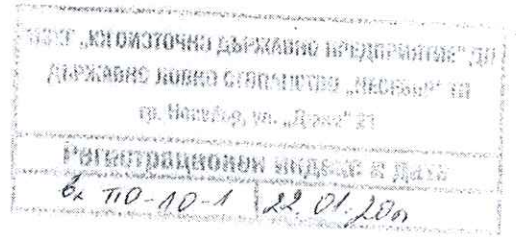 "ЮГОИЗТОЧНО ДЪРЖАВНО ПРЕДПРИЯТИЕ", ДП
ДЪРЖАВНО ЛОВНО СТОПАНСТВО "НЕСЕБЪР" ТП
гр. Несебър, ул. 21
Регистрационен индекс и дата
ПО-10-1 22.01.20